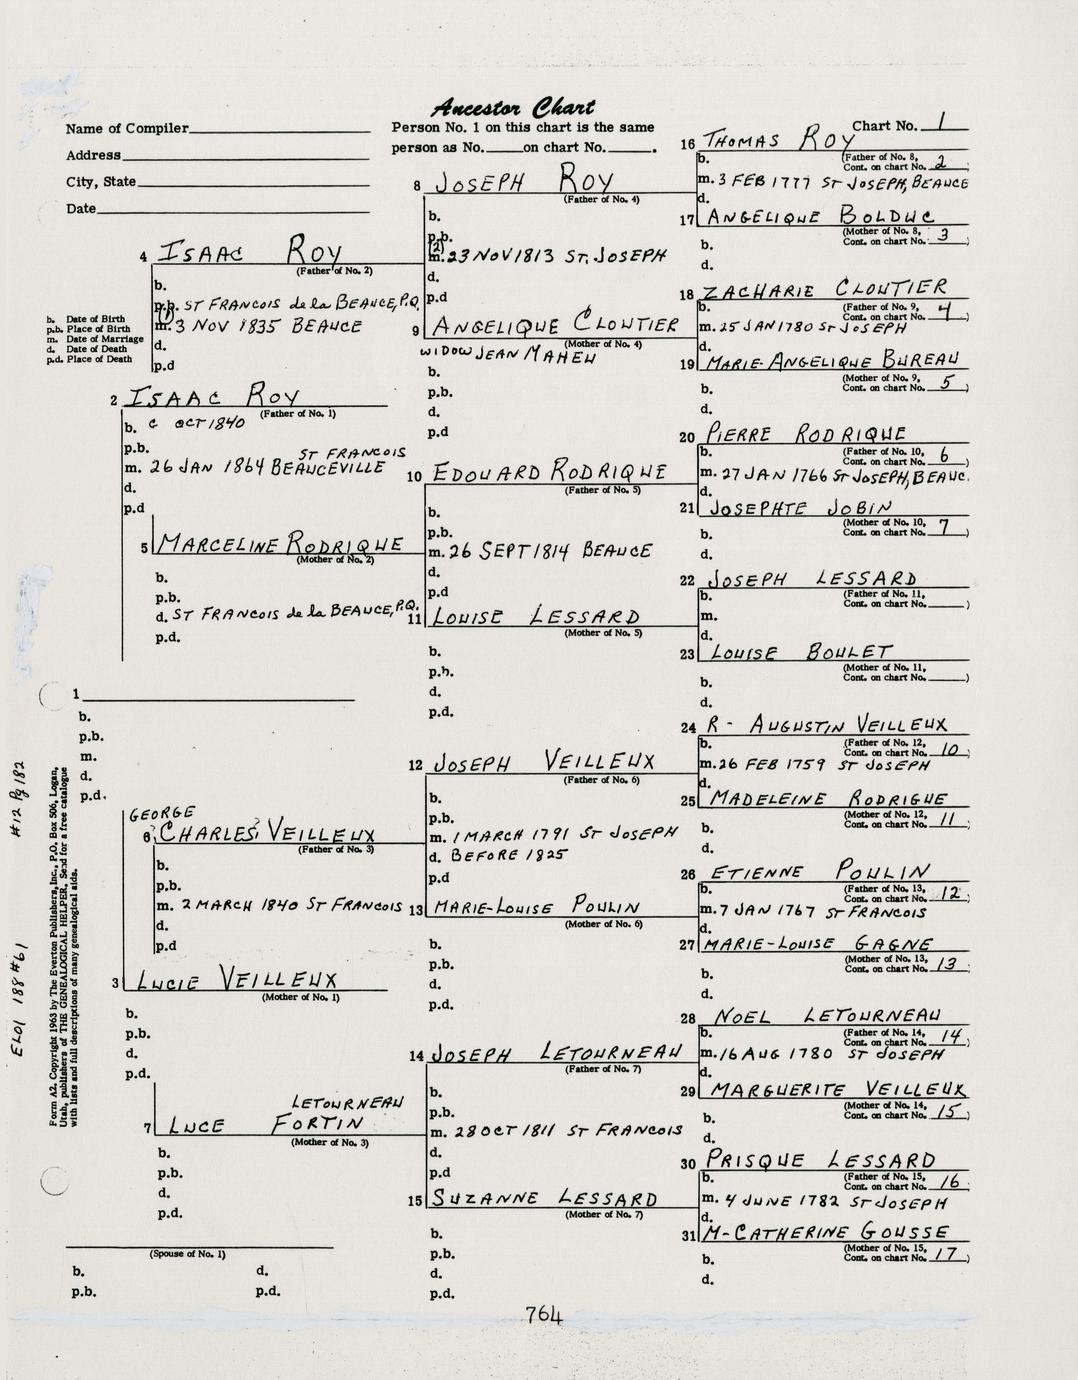 Ancestor Chart
Name of Compiler
Address
City, State
Date
Person No. 1 on this chart is the same
person as No. on chart No. .
Chart No. 1
b. Date of Birth
p.b. Place of Birth
m. Date of Marriage
d. Date of Death
p.d. Place of Death
1
b.
p.b.
m.
d.
p.d.
2 ISAAC ROY
(Father of No. 1)
b. C OCT 1840
p.b.
ST FRANCOIS
m. 26 JAN 1864 BEAUCEVILLE
d.
p.d
3 LUCIE VEILLEUX
(Mother of No. 1)
b.
p.b.
d.
p.d.
4 ISAAC ROY
(Father of No. 2)
b.
p.b. ST FRANCOIS de la BEAUCE, P.Q.
(1)
m. 3 NOV 1835 BEAUCE
d.
p.d
5 MARCELINE RODRIQUE
(Mother of No. 2)
b.
p.b.
d. ST FRANCOIS de la BEAUCE, P.Q.
p.d.
GEORGE
6 CHARLES VEILLEUX
(Father of No. 3)
b.
p.b.
m. 2 MARCH 1840 ST FRANCOIS
d.
p.d
LETOURNEAU
7 LUCE FORTIN
(Mother of No. 3)
b.
p.b.
d.
p.d.
(Spouse of No. 1)
b. d.
p.b. p.d.
8 JOSEPH ROY
(Father of No. 4)
b.
p.b.
(2)
m. 23 NOV 1813 ST. JOSEPH
d.
p.d
9 ANGELIQUE CLOUTIER
(Mother of No. 4)
WIDOW JEAN MAHEU
b.
p.b.
d.
p.d
10 EDOUARD RODRIQUE
(Father of No. 5)
b.
p.b.
m. 26 SEPT 1814 BEAUCE
d.
p.d
11 LOUISE LESSARD
(Mother of No. 5)
b.
p.b.
d.
p.d.
12 JOSEPH VEILLEUX
(Father of No. 6)
b.
p.b.
m. 1 MARCH 1791 ST JOSEPH
d. BEFORE 1825
p.d
13 MARIE-LOUISE POULIN
(Mother of No. 6)
b.
p.b.
d.
p.d.
14 JOSEPH LETOURNEAU
(Father of No. 7)
b.
p.b.
m. 28 OCT 1811 ST FRANCOIS
d.
p.d
15 SUZANNE LESSARD
(Mother of No. 7)
b.
p.b.
d.
p.d.
16 THOMAS ROY
b. (Father of No. 8,
Cont. on chart No. 2)
m. 3 FEB 1777 ST JOSEPH, BEAUCE
d.
17 ANGELIQUE BOLDUC
(Mother of No. 8,
b. Cont. on chart No. 3)
d.
18 ZACHARIE CLOUTIER
b. (Father of No. 9,
Cont. on chart No. 4)
m. 25 JAN 1780 ST JOSEPH
d.
19 MARIE-ANGELIQUE BUREAU
(Mother of No. 9,
b. Cont. on chart No. 5)
d.
20 PIERRE RODRIQUE
b. (Father of No. 10,
Cont. on chart No. 6)
m. 27 JAN 1766 ST JOSEPH, BEAUC.
d.
21 JOSEPHTE JOBIN
(Mother of No. 10,
b. Cont. on chart No. 7)
d.
22 JOSEPH LESSARD
b. (Father of No. 11,
Cont. on chart No. )
m.
d.
23 LOUISE BOULET
(Mother of No. 11,
b. Cont. on chart No. )
d.
24 R - AUGUSTIN VEILLEUX
b. (Father of No. 12,
Cont. on chart No. 10)
m. 26 FEB 1759 ST JOSEPH
d.
25 MADELEINE RODRIGUE
(Mother of No. 12,
b. Cont. on chart No. 11)
d.
26 ETIENNE POULIN
b. (Father of No. 13,
Cont. on chart No. 12)
m. 7 JAN 1767 ST FRANCOIS
d.
27 MARIE-LOUISE GAGNE
(Mother of No. 13,
b. Cont. on chart No. 13)
d.
28 NOEL LETOURNEAU
b. (Father of No. 14,
Cont. on chart No. 14)
m. 16 AUG 1780 ST JOSEPH
d.
29 MARGUERITE VEILLEUX
(Mother of No. 14,
b. Cont. on chart No. 15)
d.
30 PRISQUE LESSARD
b. (Father of No. 15,
Cont. on chart No. 16)
m. 4 JUNE 1782 ST JOSEPH
d.
31 M-CATHERINE GOUSSE
(Mother of No. 15,
b. Cont. on chart No. 17)
d.
Form A2. Copyright 1963 by The Everton Publishers, Inc., P.O. Box 506, Logan,
Utah, publishers of THE GENEALOGICAL HELPER. Send for a free catalogue
with lists and full descriptions of many genealogical aids.
EL01 188 #61 #12 Pg 182
764